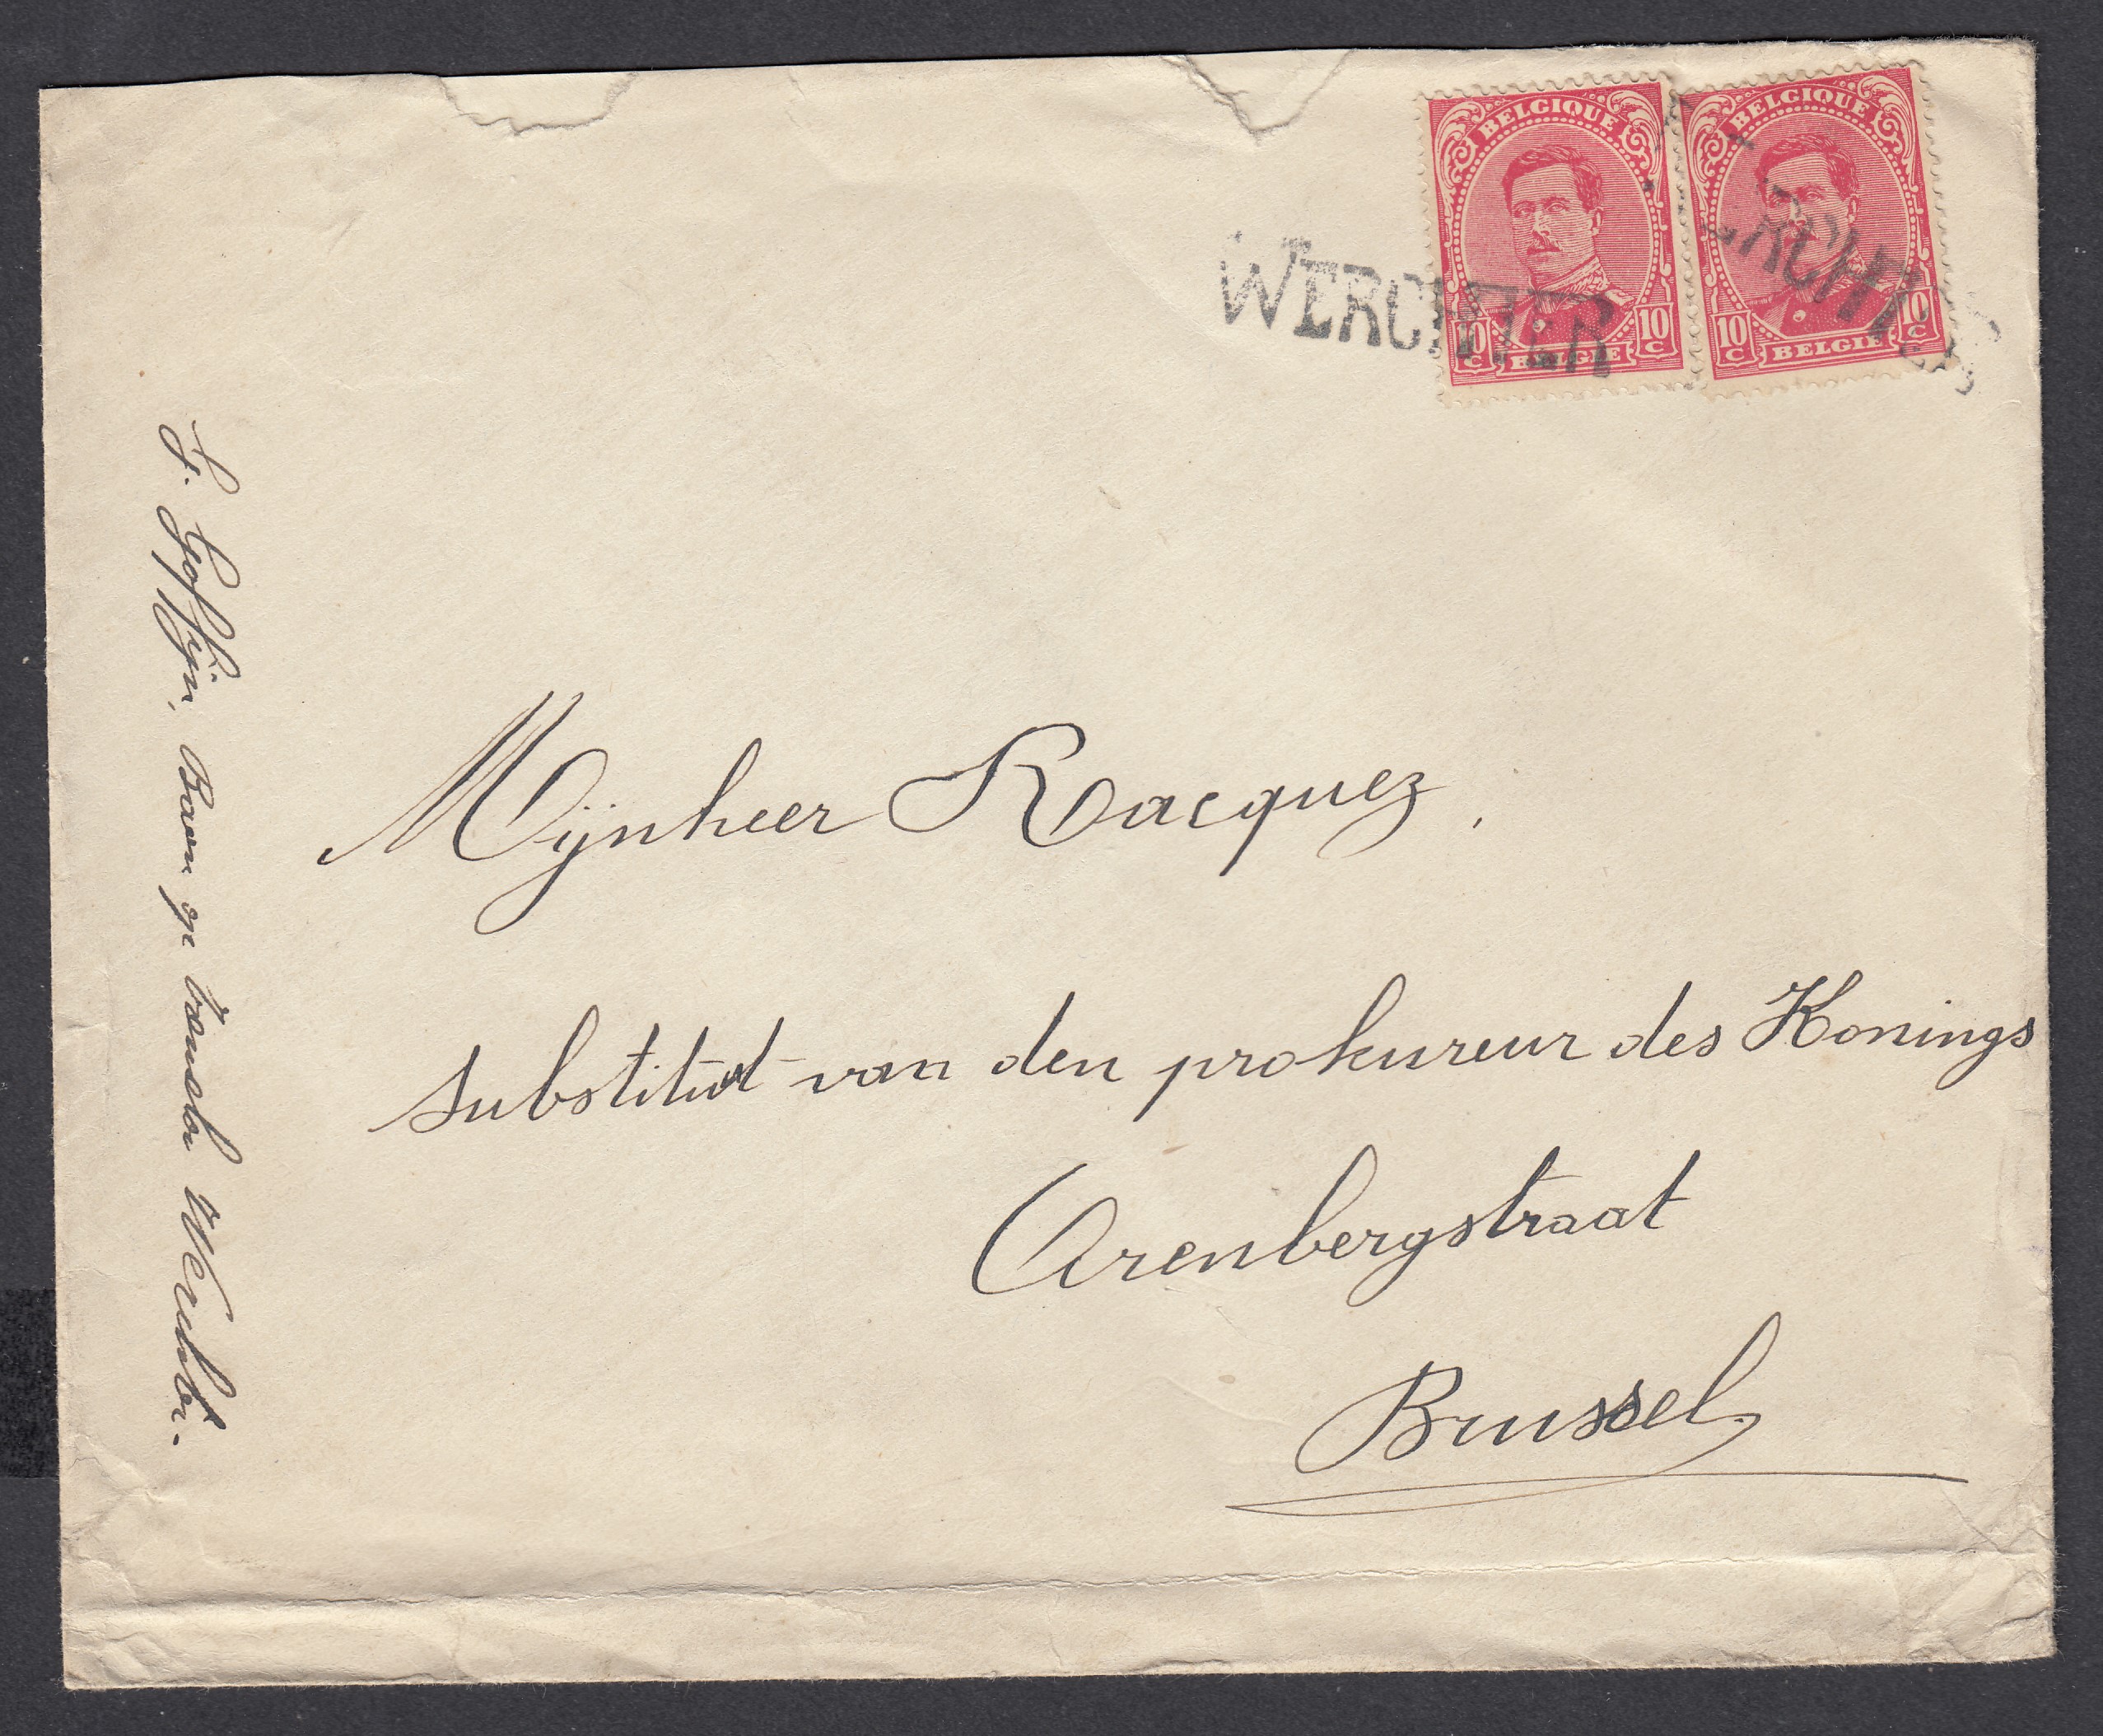 BELGIQUE
10 C BELGIE 10 C
BELGIQUE
10 C BELGIE 10 C
WERCHTER
ERCHTER
Mijnheer Racquez,
substituut van den prokureur des Konings
Arenbergstraat
Brussel
Werchter.